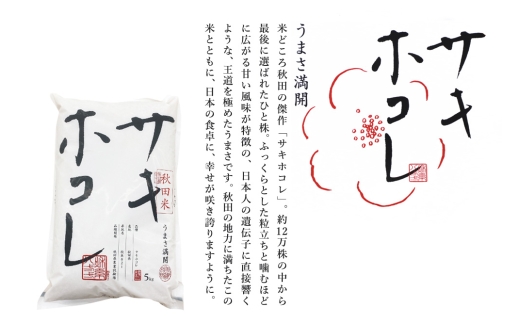 サキ
ホコレ
うまさ満開
米どころ秋田の傑作「サキホコレ」。約12万株の中から
最後に選ばれたひと株。ふっくらとした粒立ちと噛むほど
に広がる甘い風味が特徴の、日本人の遺伝子に直接響く
ような、王道を極めたうまさです。秋田の地力に満ちたこの
米とともに、日本の食卓に、幸せが咲き誇りますように。
サキ
ホコレ
秋田米
うまさ満開
5kg